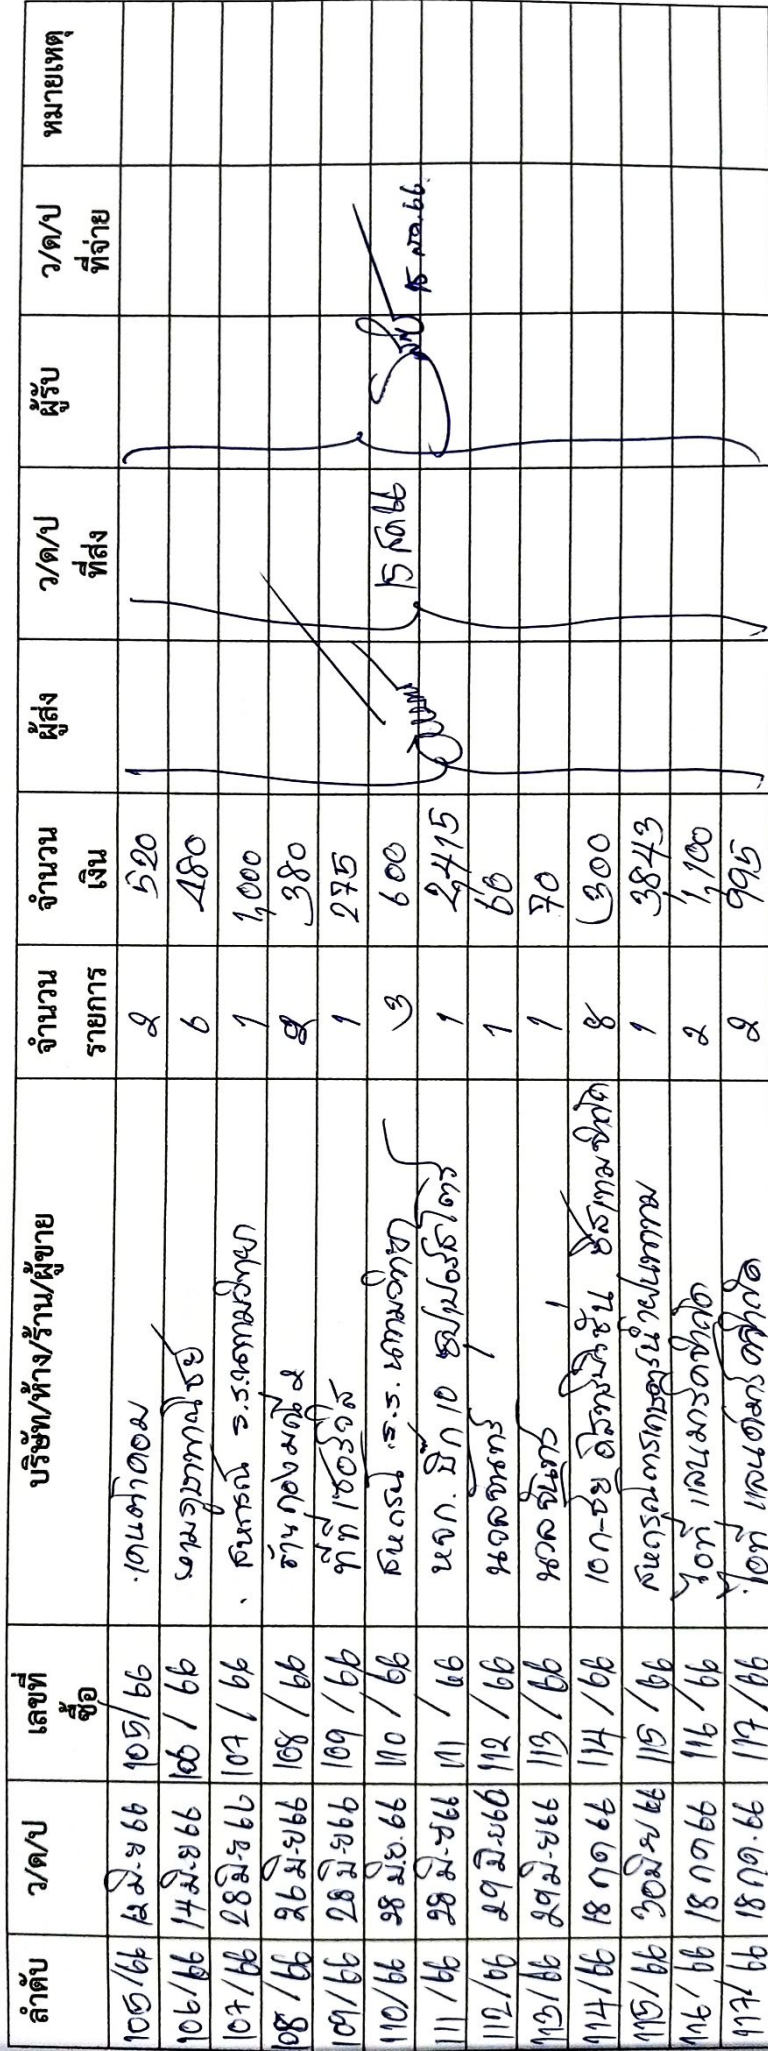 ลำดับ ว/ด/ป เลขที่ซื้อ บริษัท/ห้าง/ร้าน/ผู้ขาย จำนวนรายการ จำนวนเงิน ผู้ส่ง ว/ด/ป ที่ส่ง ผู้รับ ว/ด/ป ที่จ่าย หมายเหตุ
105/66 12 มิ.ย 66 105/66 เดนต้าคอม 2 520
106/66 14 มิ.ย 66 106/66 6 480
107/66 28 มิ.ย 66 107/66 สหกรณ์ ร.ร.นาทมวิทยา 1 1,000
108/66 26 มิ.ย 66 108/66 ร้านทองมณี 2 2 380
109/66 28 มิ.ย 66 109/66 ทีที เซอร์วิส 1 275
110/66 28 มิ.ย. 66 110/66 สหกรณ์ ร.ร. นาทมวิทยา 3 600 15 สค 66 15 สค. 66
111/66 28 มิ.ย 66 111/66 หจก. บิ๊ก 10 ซุปเปอร์สโตร์ 1 2,415
112/66 29 มิ.ย 66 112/66 นวลจันทร์ 1 60
113/66 29 มิ.ย 66 113/66 นวลจันทร์ 1 70
114/66 18 กค 66 114/66 เอก-ชัย ดีสทริบิวชั่น ซิสเทม จำกัด 8 1300
115/66 30 มิ.ย 66 115/66 สหกรณ์การเกษตร 1 3843
116/66 18 กค 66 116/66 ไอที แลนมาร์ค จำกัด 2 1,100
117/66 18 กค. 66 117/66 ไอที แลนด์มาร์ค จำกัด 2 995